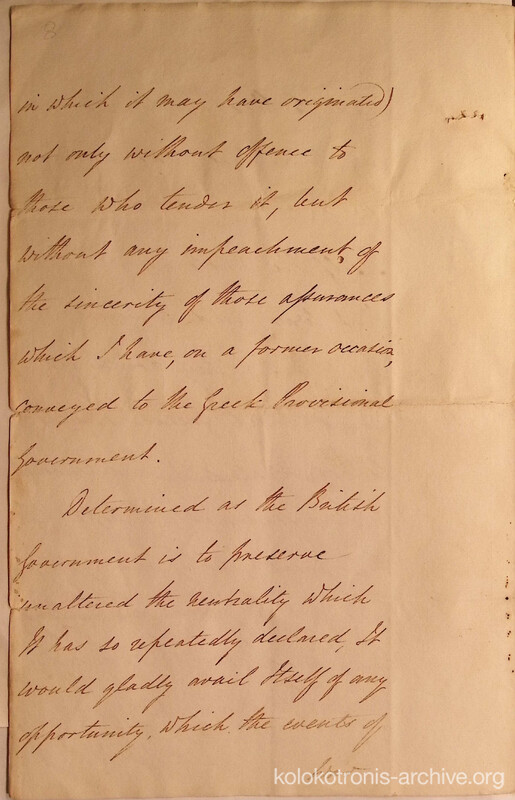 in which it may have originated)
not only without offence to
those who tender it, but
without any impeachment of
the sincerity of those assurances
which I have, on a former occasion,
conveyed to the Greek Provisional
Government.
Determined as the British
Government is to preserve
unaltered the neutrality which
It has so repeatedly declared, It
would gladly avail Itself of any
opportunity, which the events of
kolokotronis-archive.org